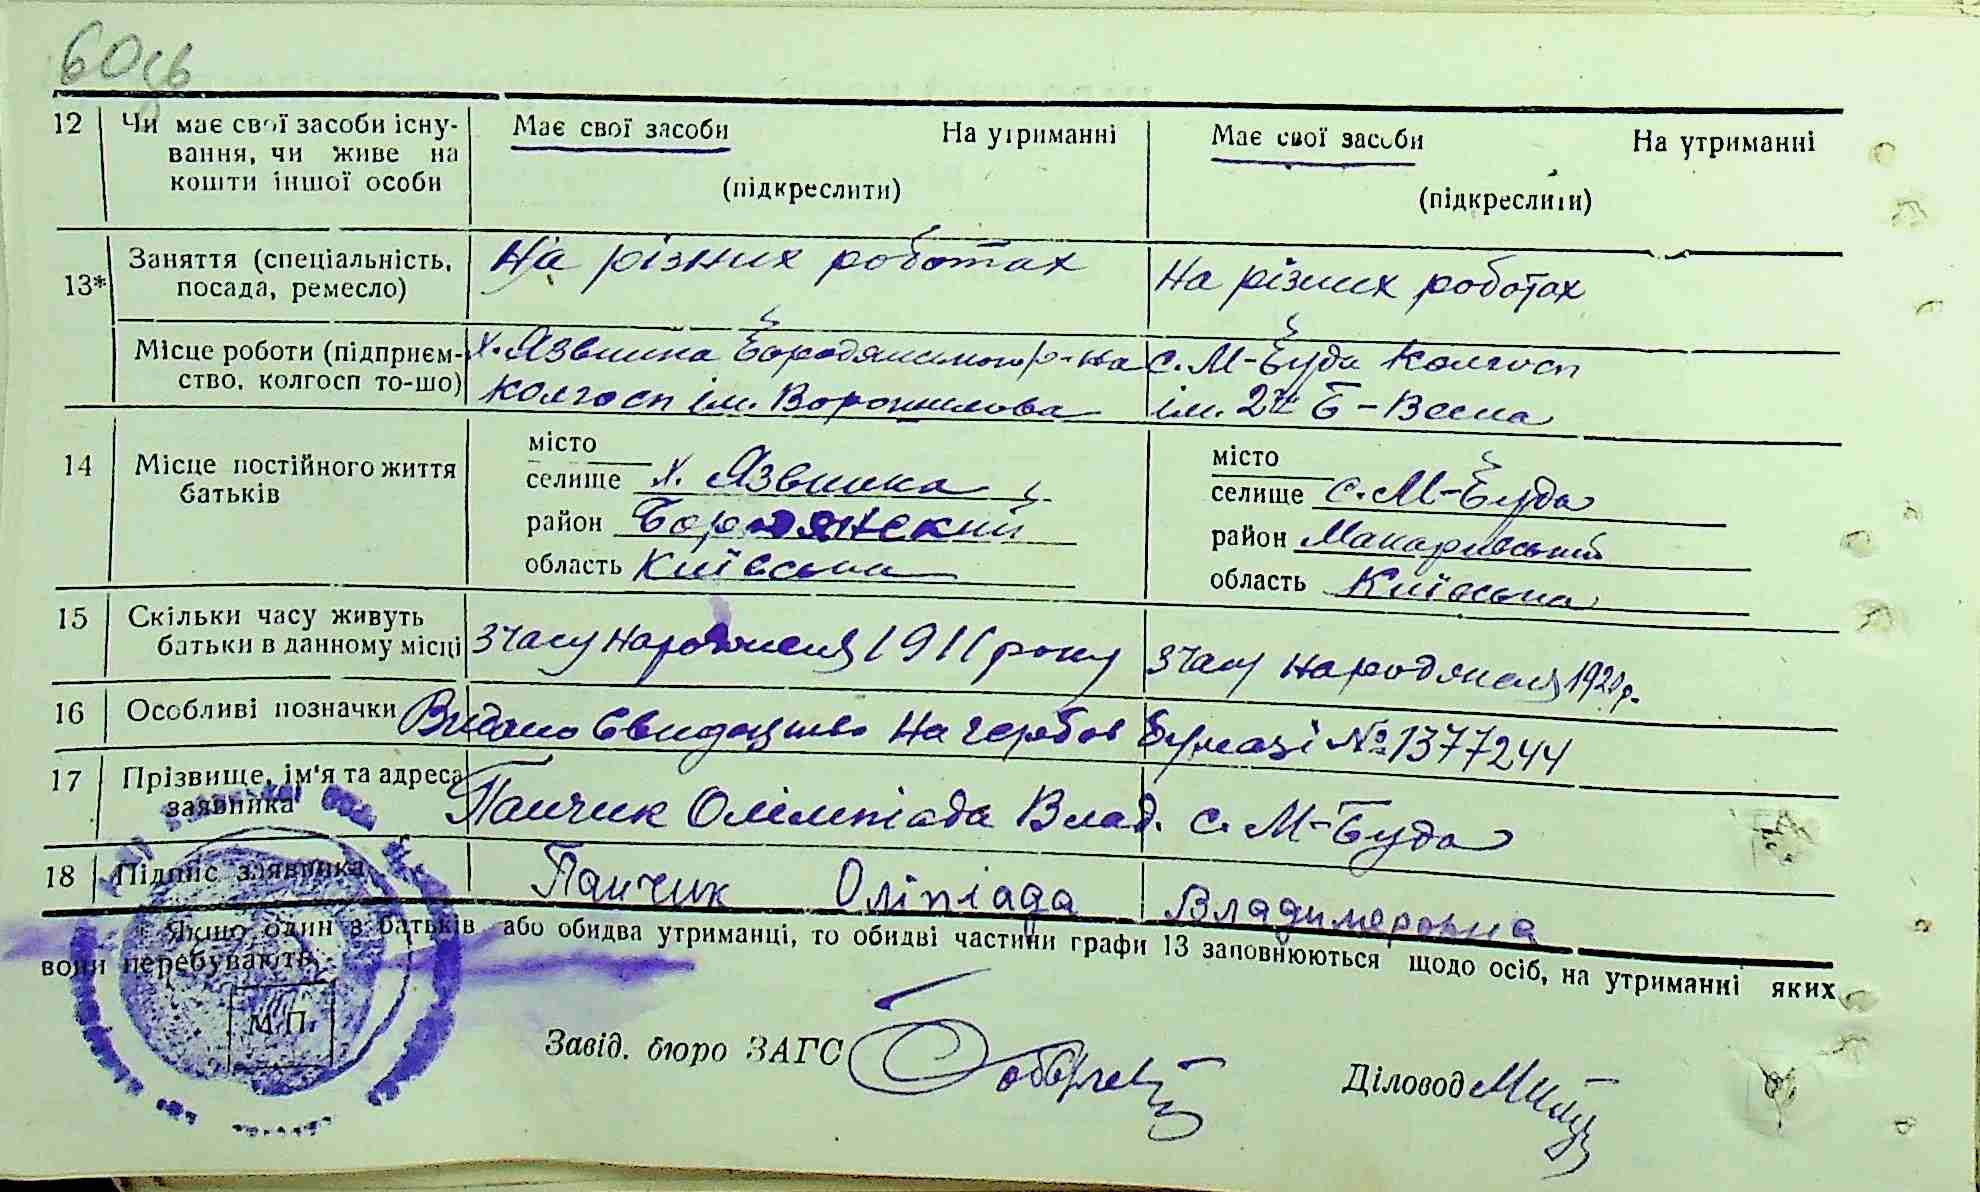 60
12 Чи має свої засоби існу- Має свої засоби На утриманні Має свої засоби На утриманні
вання, чи живе на
кошти іншої особи (підкреслити) (підкреслити)
13* Заняття (спеціальність, На різних роботах На різних роботах
посада, ремесло)
Місце роботи (підприєм- х. Язвинка Бородянського р-на с. М-Буда Колгосп
ство, колгосп то-шо) колгосп ім. Ворошилова ім. 2ї Б-Весна
14 Місце постійного життя місто місто
батьків селище х. Язвинка селище с. М-Буда
район Бородянский район Макарівський
область Київська область Київська
15 Скільки часу живуть
батьки в данному місці З часу народження 1911 року З часу народження
16 Особливі позначки Видано Свидоцтво на гербов бумазі № 1377244
17 Прізвище, ім'я та адреса
заявника Панчик Олімпіада Влад. с. М-Буда
18 Підпис заявника Панчик Оліпіада Владимеровна
* Якщо один з батьків або обидва утриманці, то обидві частини графи 13 заповнюються щодо осіб, на утриманні яких
вони перебувають.
М.П.
Завід. бюро ЗАГС
Діловод